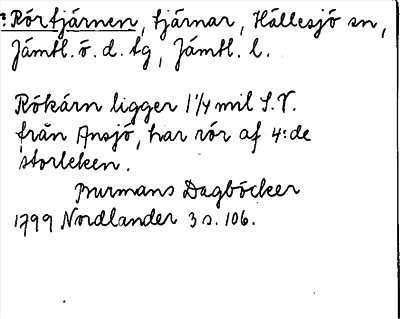 :Rörtjärnen, tjärnar, Hällesjö sn,
Jämtl. ö. d. tg, Jämtl. l.
Rökärn ligger 1 1/4 mil S.V.
från Ansjö, har rör af 4:de
storleken.
Burmans Dagböcker
1799 Nordlander 3 s. 106.